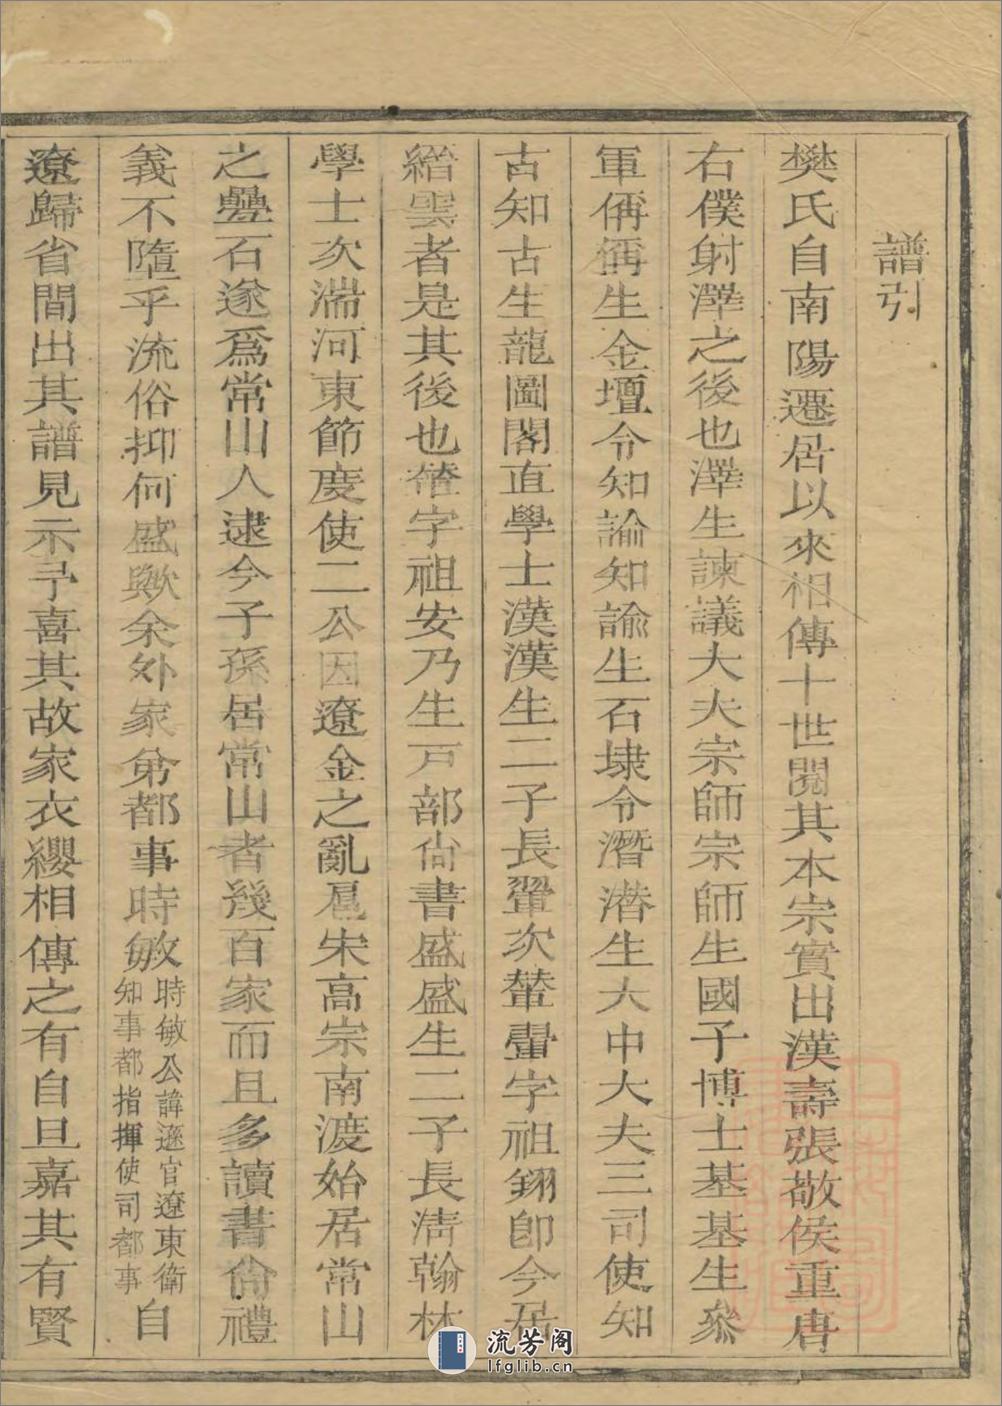 譜引
樊氏自南陽遷居以來相傳十世閱其本宗實出漢壽張敬侯重唐
右僕射澤之後也澤生諫議大夫宗師宗師生國子博士基基生參
軍偁偁生金壇令知諭知諭生石埭令潛潛生大中大夫三司使知
古知古生龍圖閣直學士漢漢生二子長翬次輦翬字祖翱卽今居
縉雲者是其後也輦字祖安乃生戸部尙書盛盛生二子長淸翰林
學士次湍河東節度使二公因遼金之亂扈宋高宗南渡始居常山
之疊石遂爲常山人逮今子孫居常山者幾百家而且多讀書尙禮
義不墮乎流俗抑何盛歟余外家弟都事時敏時敏公諱遜官遼東衛知事都指揮使司都事自
遼歸省間出其譜見示予喜其故家衣纓相傳之有自且嘉其有賢
流芳阁
lfglib.cn